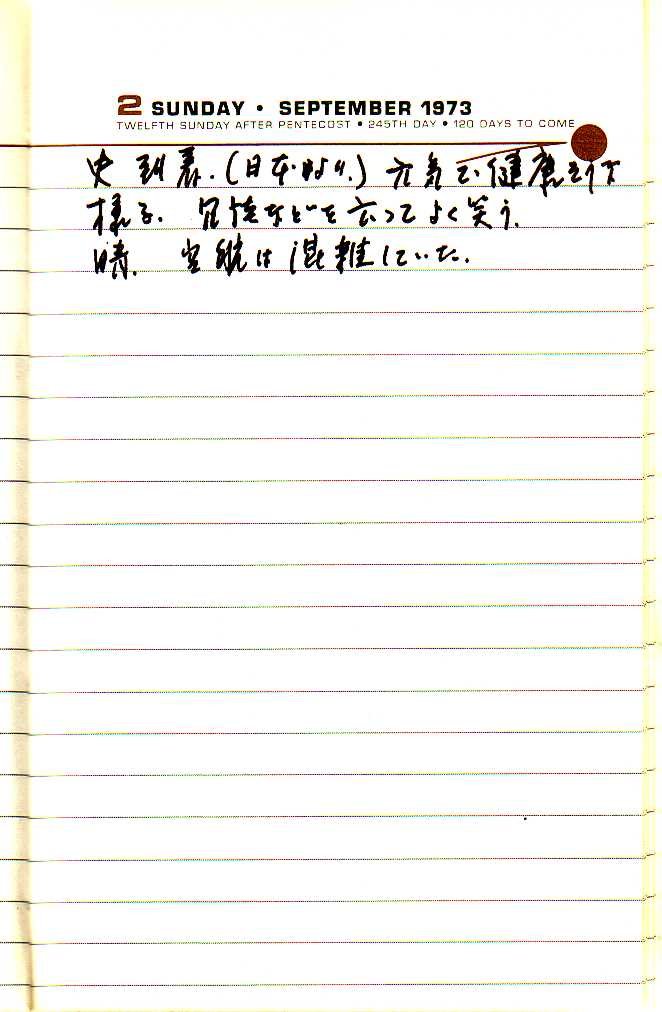 2 SUNDAY • SEPTEMBER 1973
TWELFTH SUNDAY AFTER PENTECOST • 245TH DAY • 120 DAYS TO COME
史 到着.(日本より.) 元気で健康そうな
様子. 冗談などを言ってよく笑う.
晴. 空港は混雑していた.